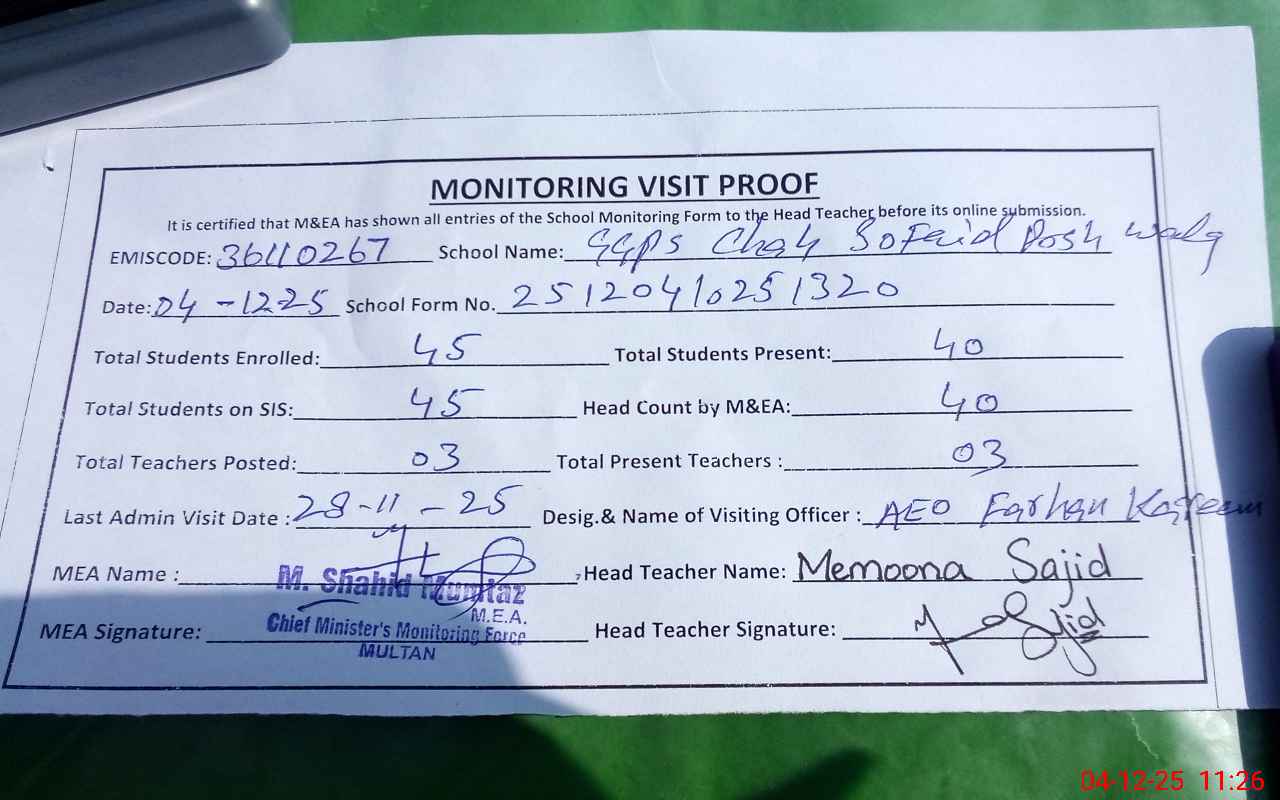 MONITORING VISIT PROOF
It is certified that M&EA has shown all entries of the School Monitoring Form to the Head Teacher before its online submission.
EMISCODE: 36110267 School Name: GGPS Chah Sofaid Posh Wala
Date: 04-12-25 School Form No. 25120410251320
Total Students Enrolled: 45 Total Students Present: 40
Total Students on SIS: 45 Head Count by M&EA: 40
Total Teachers Posted: 03 Total Present Teachers : 03
Last Admin Visit Date : 28-11-25 Desig.& Name of Visiting Officer : AEO Farhan
MEA Name : M. Shahid Mumtaz Head Teacher Name: Memoona Sajid
M.E.A.
MEA Signature: Chief Minister's Monitoring Force Head Teacher Signature: Sajid
MULTAN
04-12-25 11:26